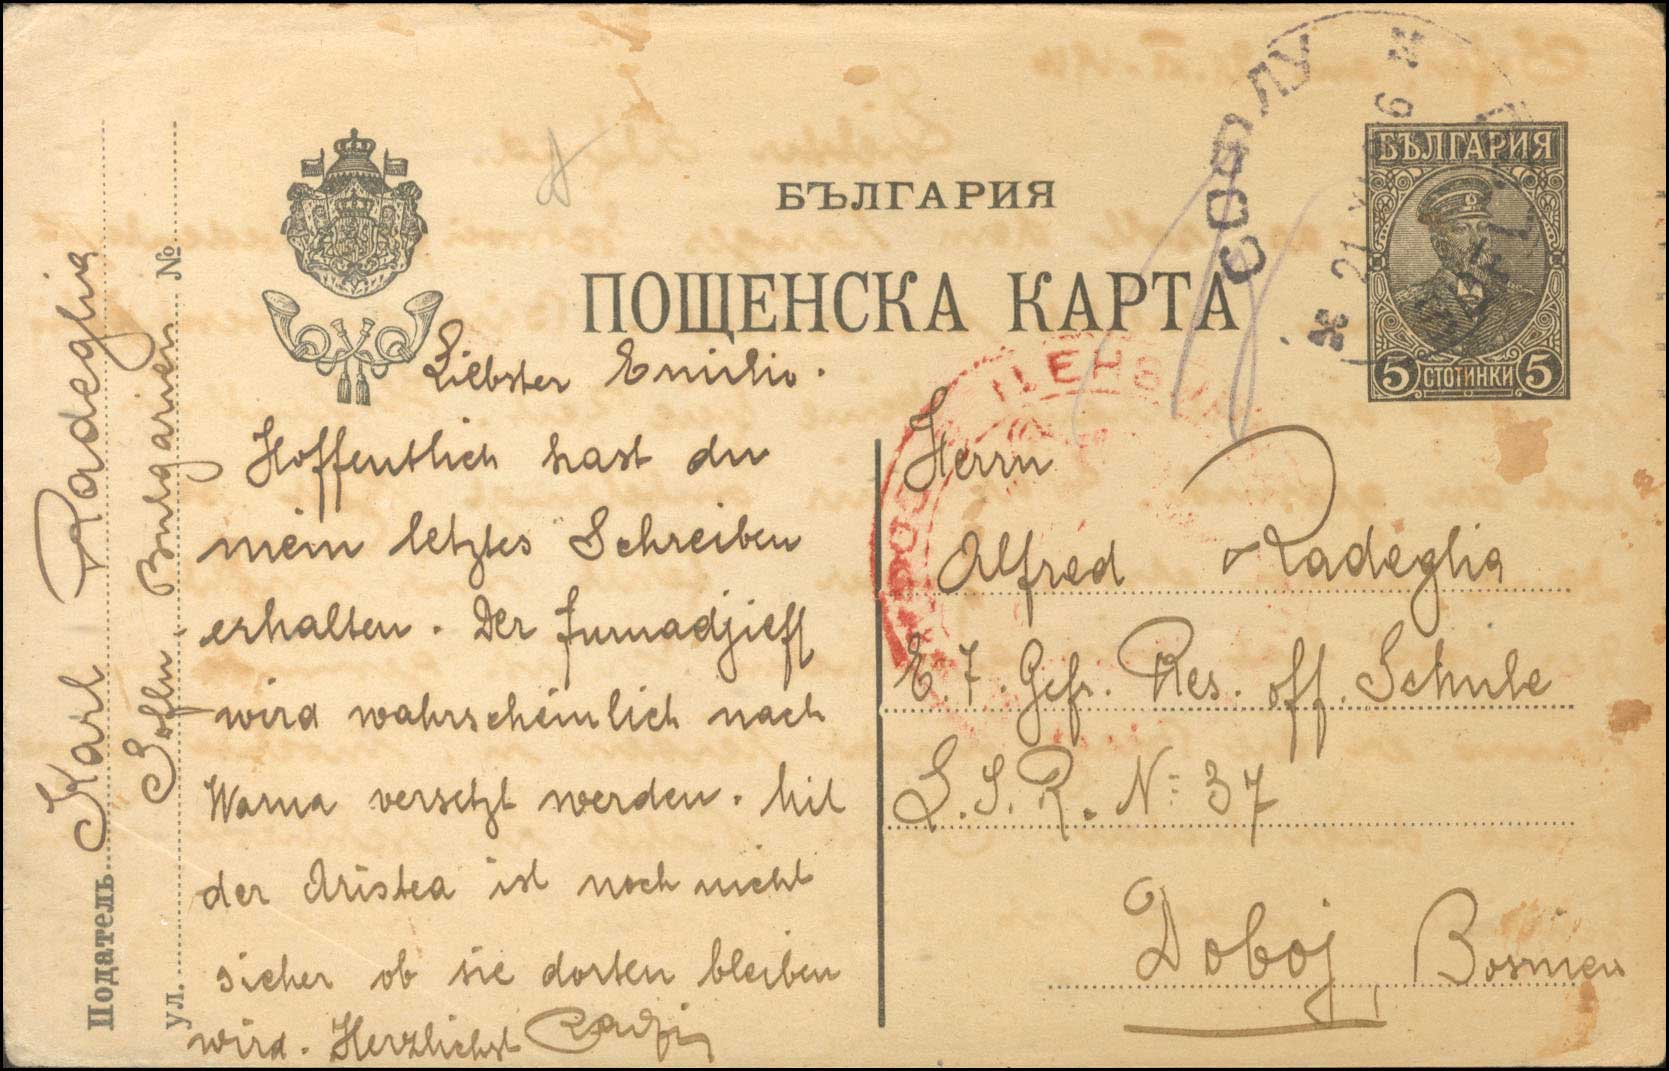 БЪЛГАРИЯ
ПОЩЕНСКА КАРТА
БЪЛГАРИЯ
5 СТОТИНКИ 5
Податель Karl Radeglia
ул. Sofia Bulgarien №
Liebster Emilio.
Hoffentlich hast du
mein letztes Schreiben
erhalten. Der Furnadjieff
wird wahrscheinlich nach
Warna versetzt werden. Mit
der Aristea ist noch nicht
sicher ob sie dorten bleiben
wird. Herzlichst
Herrn
Alfred Radeglia
E. F. Gefr. Res. off. Schule
L. I. R. N: 37
Doboj, Bosnien